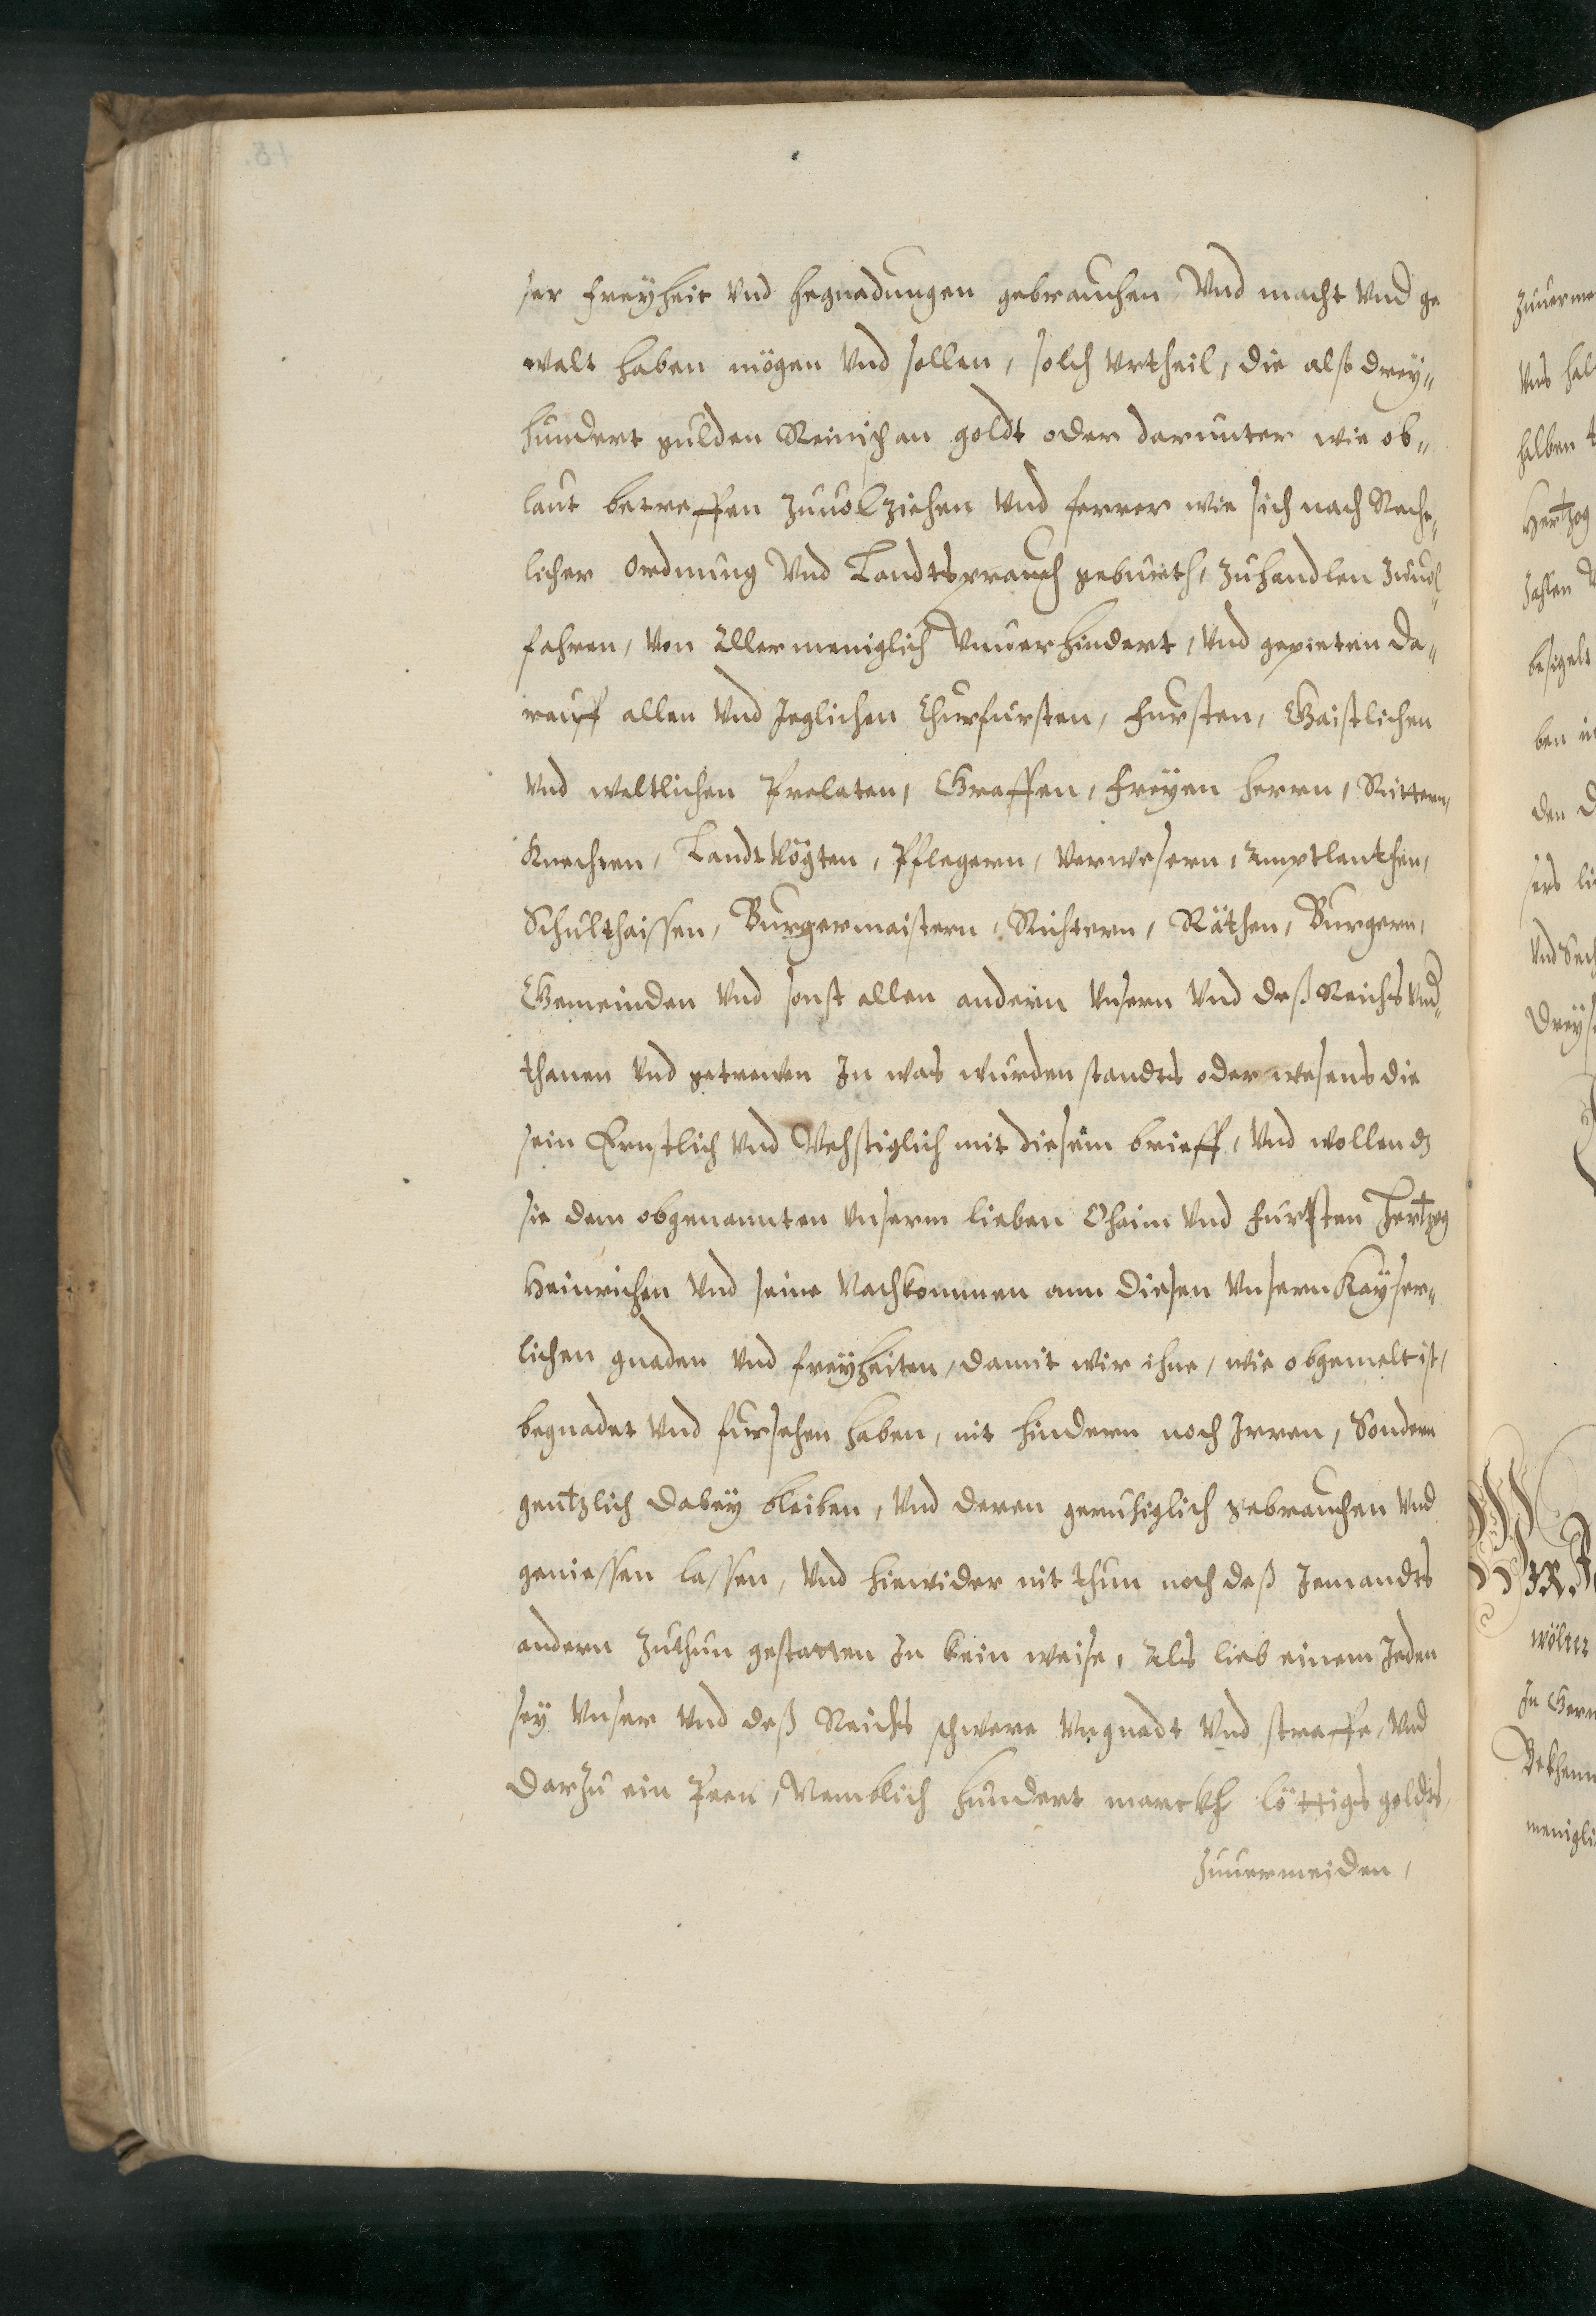 ser freyheit vnd begnadungen gebrauchen, Vnd macht vnd ge
walt haben mögen vnd sollen, solch Vrtheil, die also drey„
hundert gulden Reinisch an goldt oder darunter wie ob„
laut betreffen zuuolziehen vnd ferrer wie sich nach Recht„
licher ordnung Vnd Landtsprauch gebureth, zuhandlen zuuol„
fahren, von Allermeniglich Vnuerhindert, vnd gepieten da„
rauff allen vnd Jeglichen Churfursten, Fursten, Gaistlichen
vnd weltlichen Prelaten, Graffen, Freyen herrn, Rittern,
Knechten, Landtvögten, Pflegern, Verwesern, Amptleuthen,
Schulthaissen, Burgermaistern, Richtern, Räthen, Burgern,
Gemeinden vnd sonst allen andern vnsern vnd deß Reichs vnd„
thanen vnd getrewen In was wurden standts oder wesens die
sein Ernstlich vnd Vehstiglich mit diesem brieff, vnd wollen dz
sie dem obgenannten vnserm lieben Ohaim vnd Fursten Hertzog
Heinrichen vnd seine Nachkommen ann diesen vnsern Kayser„
lichen gnaden vnd freyheiten, damit wir ihne, wie obgemelt ist,
begnadet vnd fursehen haben, nit hindern noch Irren, Sondern
gentzlich dabey bleiben, vnd deren geruhiglich gebrauchen vnd
geniessen lassen, vnd hiewider nit thun noch deß Jemandts
andern zuthun gestatten In kein weise, Als lieb einem Jeden
sey vnser vnd deß Reichs schwere vngnadt vnd straffe, vnd
darzu ein Peen, Nemblich hundert marckh löttigs goldts,
zuuermeiden,
zuuerme
vns hal
halben
Hertzog
Zahlen
besigelt
ben in
den
sers li
vnd Sech
Dreys
WIR.
wölter
In Germ
Bekhenn
menigli